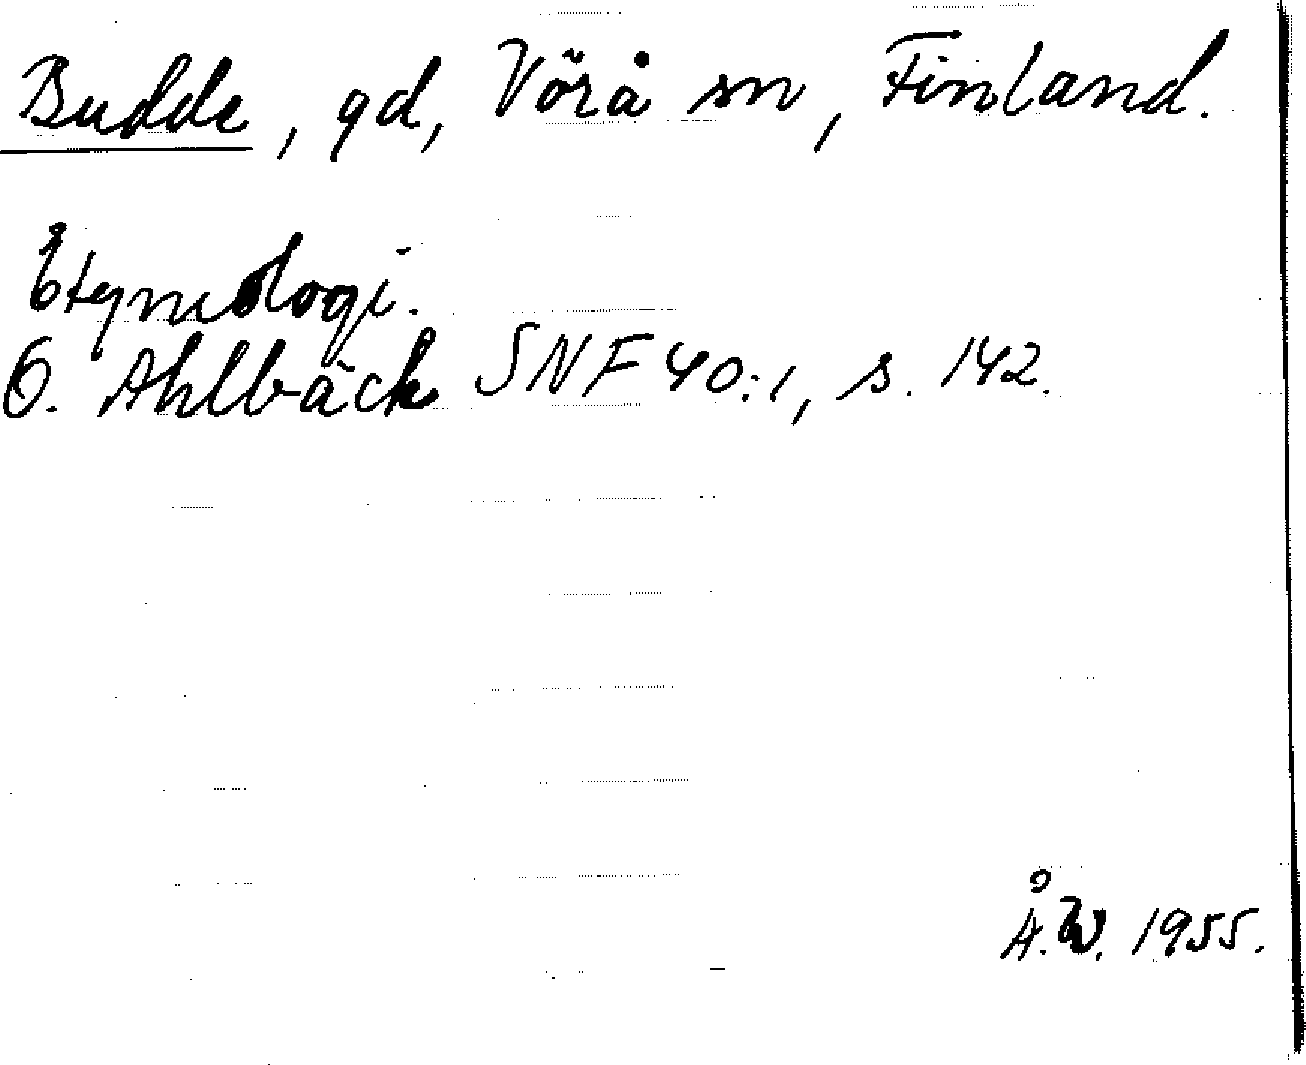 Budde, gd, Vörå sn, Finland.
Etymologi.
O. Ahlbäck SNF 40:1, s. 142.
Å.W. 1955.